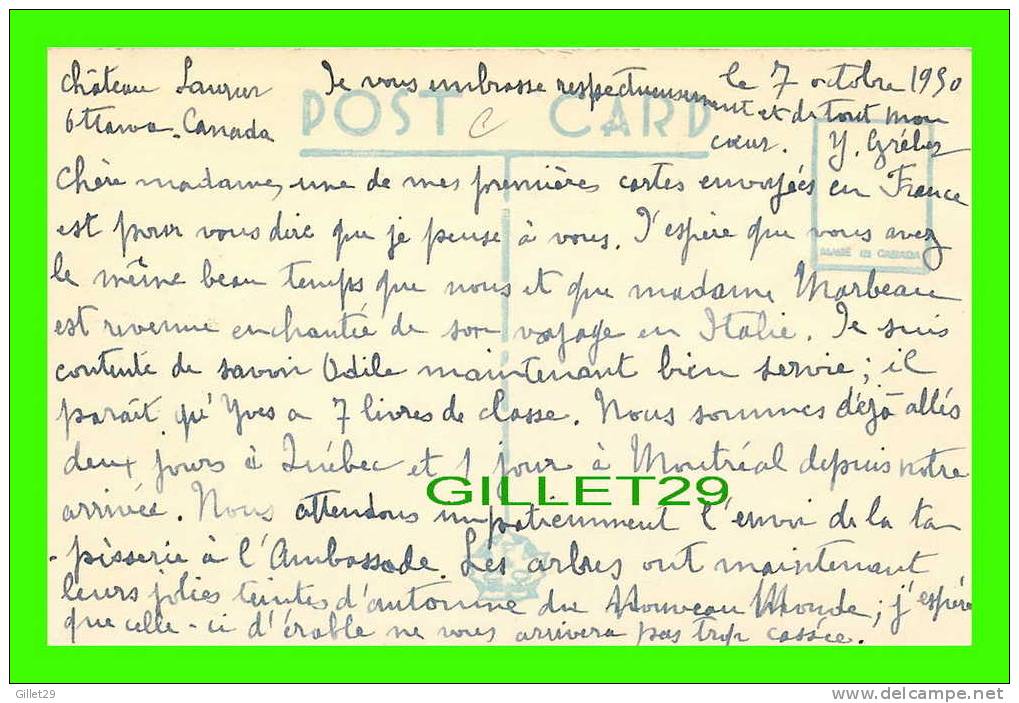 Château Laurier
Ottawa - Canada
le 7 octobre 1950
Je vous embrasse respectueusement et de tout mon
cœur. Y. Grébey
POST CARD
MADE IN CANADA
Chère madame, une de mes premières cartes envoyées en France
est pour vous dire que je pense à vous. J'espère que vous avez
le même beau temps que nous et que madame Marbeau
est revenue enchantée de son voyage en Italie. Je suis
contente de savoir Odile maintenant bien servie; il
paraît qu'Yves a 7 livres de classe. Nous sommes déjà allés
deux jours à Québec et 1 jour à Montréal depuis notre
arrivée. Nous attendons impatiemment l'envoi de la ta
-pisserie à l'Ambassade. Les arbres ont maintenant
leurs jolies teintes d'automne du Nouveau Monde; j'espère
que celle-ci d'érable ne vous arrivera pas trop cassée.
GILLET29
Gillet29
http://www.delcampe.net